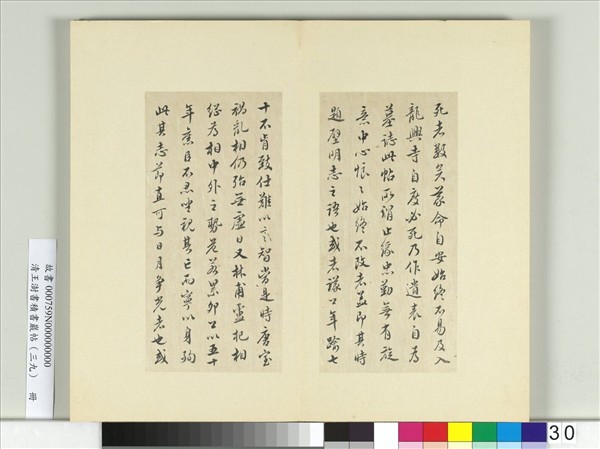 死者數矣蒙命自安始終不易及入
龍興寺自度必死乃作遺表自為
墓誌此帖所謂止緣忠勤無有旋
意中心恨之始終不改者蓋即其時
題壁明志之語也或者議公年踰七
十不肯致仕難以言智當是時唐室
禍亂相仍殆無虛日又林甫盧杞相
繼為相中外之勢危若累卵公以五十
年舊臣不忍坐視其亡而寧以身殉
此其志節直可与日月爭光者也或
故書 000759N000000000
清王澍書積書巖帖(三九) 冊
30